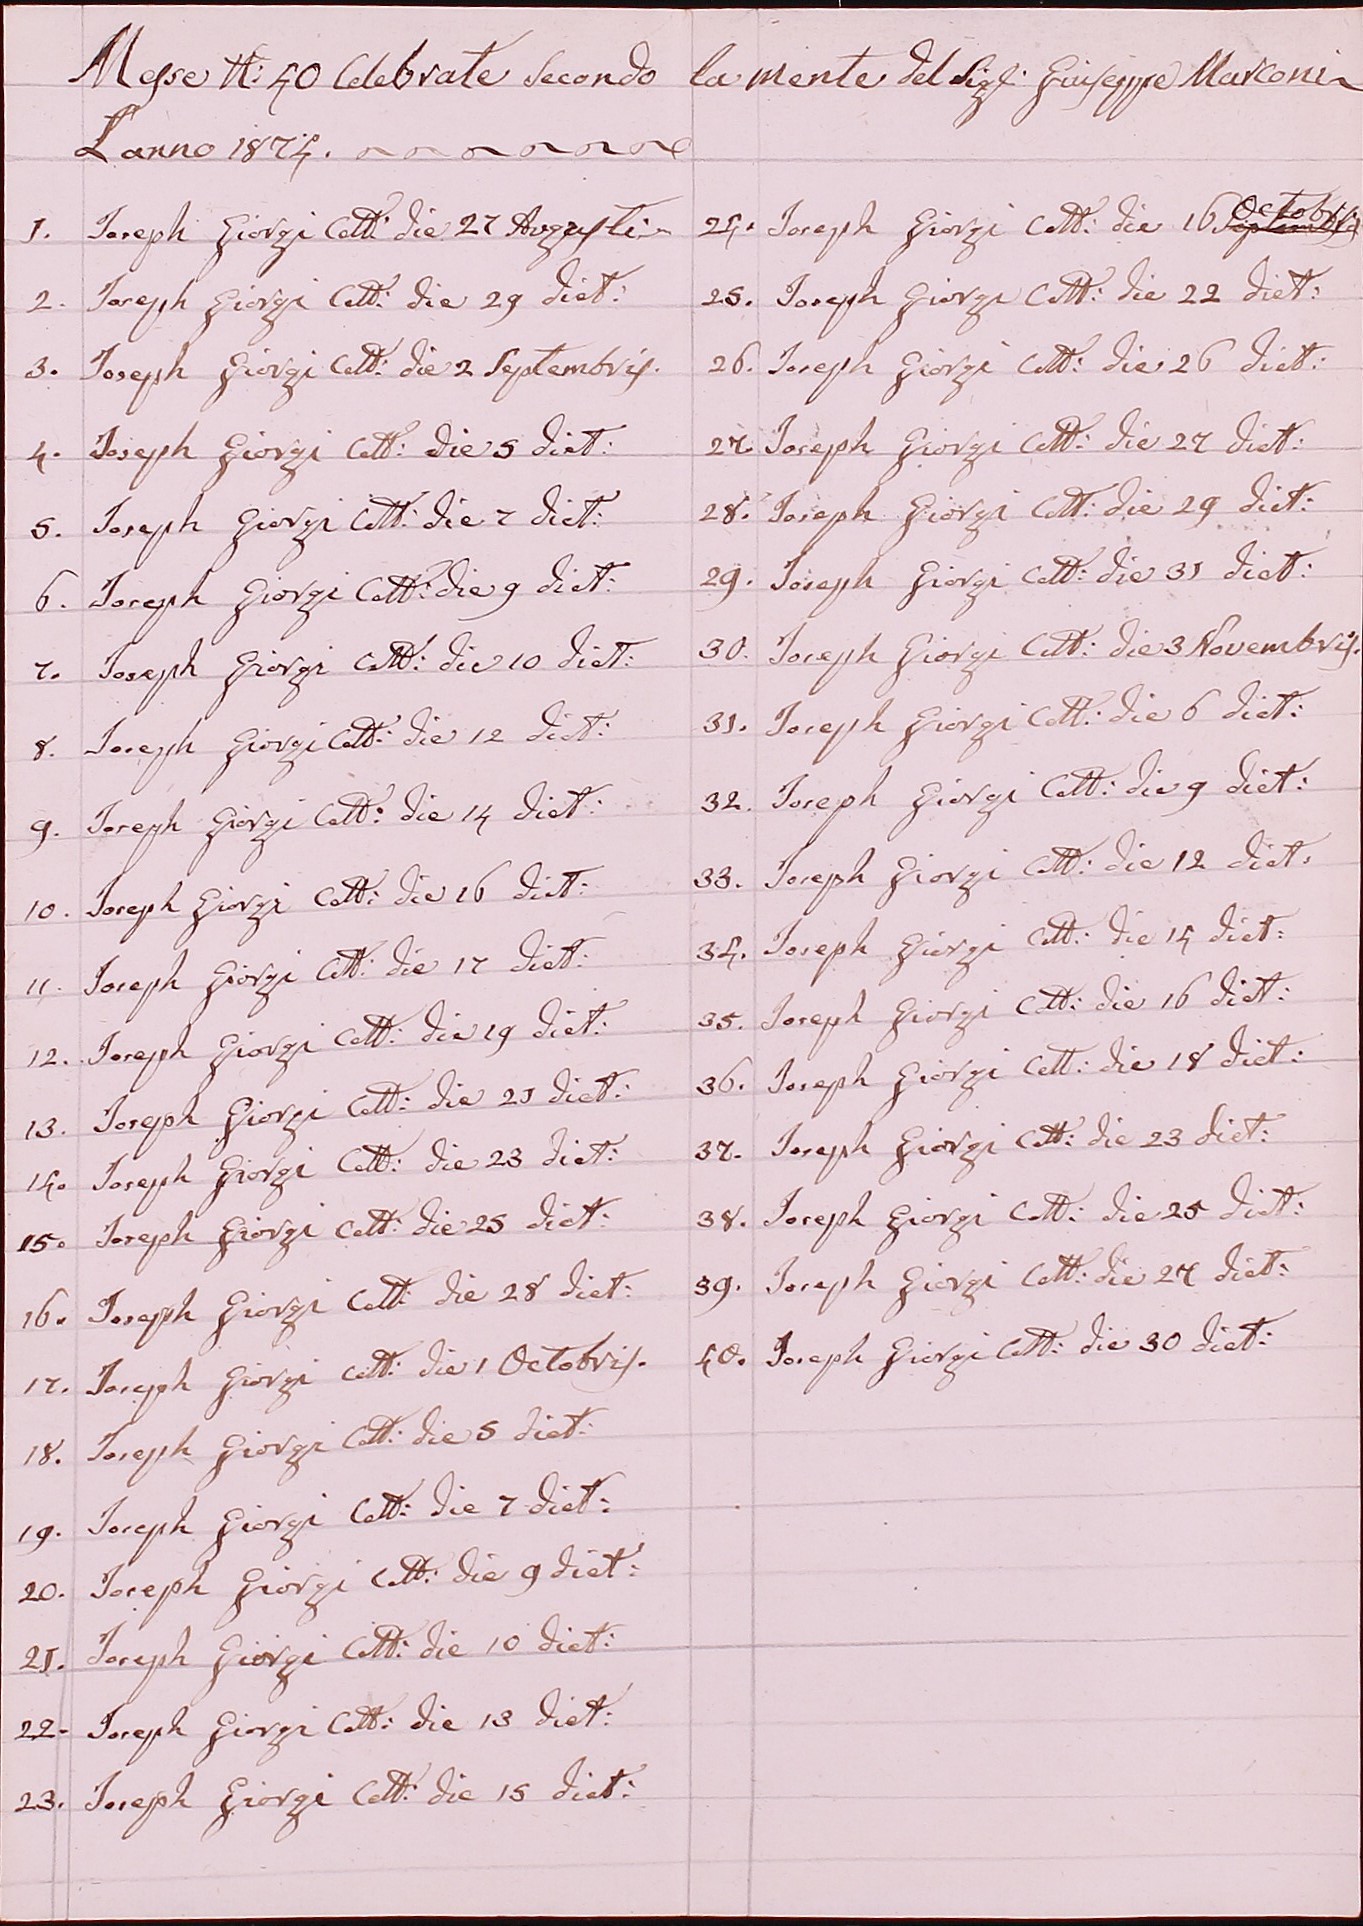 Messe N: 40 Celebrate Secondo la mente del Sigf: Giuseppe Marconi
L'anno 1874.
1. Joseph Giorgi Cott: die 27 Augusti
2. Joseph Giorgi Cott: die 29 dict:
3. Joseph Giorgi Cott: die 2 Septembris.
4. Joseph Giorgi Cott: die 5 dict:
5. Joseph Giorgi Cott: die 7 dict:
6. Joseph Giorgi Cott: die 9 dict:
7. Joseph Giorgi Cott: die 10 dict:
8. Joseph Giorgi Cott: die 12 dict:
9. Joseph Giorgi Cott: die 14 dict:
10. Joseph Giorgi Cott: die 16 dict:
11. Joseph Giorgi Cott: die 17 dict:
12. Joseph Giorgi Cott: die 19 dict:
13. Joseph Giorgi Cott: die 21 dict:
14. Joseph Giorgi Cott: die 23 dict:
15. Joseph Giorgi Cott: die 25 dict:
16. Joseph Giorgi Cott: die 28 dict:
17. Joseph Giorgi Cott: die 1 Octobris.
18. Joseph Giorgi Cott: die 5 dict:
19. Joseph Giorgi Cott: die 7 dict:
20. Joseph Giorgi Cott: die 9 dict:
21. Joseph Giorgi Cott: die 10 dict:
22. Joseph Giorgi Cott: die 13 dict:
23. Joseph Giorgi Cott: die 15 dict:
24. Joseph Giorgi Cott: die 16 Octobris Septembris
25. Joseph Giorgi Cott: die 22 dict:
26. Joseph Giorgi Cott: die 26 dict:
27. Joseph Giorgi Cott: die 27 dict:
28. Joseph Giorgi Cott: die 29 dict:
29. Joseph Giorgi Cott: die 31 dict:
30. Joseph Giorgi Cott: die 3 Novembris.
31. Joseph Giorgi Cott: die 6 dict:
32. Joseph Giorgi Cott: die 9 dict:
33. Joseph Giorgi Cott: die 12 dict:
34. Joseph Giorgi Cott: die 14 dict:
35. Joseph Giorgi Cott: die 16 dict:
36. Joseph Giorgi Cott: die 18 dict:
37. Joseph Giorgi Cott: die 23 dict:
38. Joseph Giorgi Cott: die 25 dict:
39. Joseph Giorgi Cott: die 27 dict:
40. Joseph Giorgi Cott: die 30 dict: